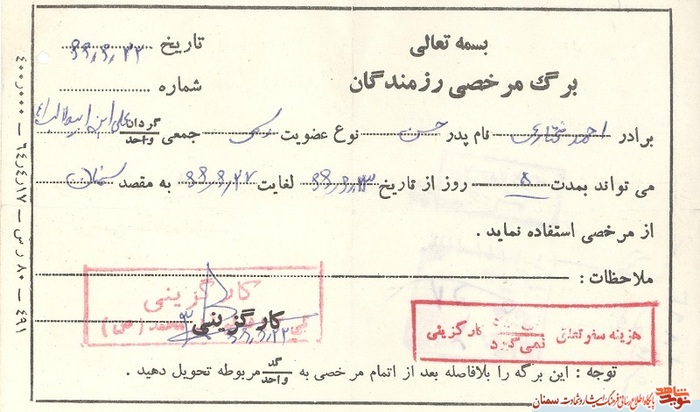 بسمه تعالی
تاریخ ۶۶,۶,۲۲
برگ مرخصی رزمندگان
شماره
برادر احمد مختاری نام پدر حسن نوع عضویت جمعی گردان/واحد علی ابن ابیطالب
می تواند بمدت ۵ روز از تاریخ ۶۶,۶,۲۳ لغایت ۶۶,۶,۲۷ به مقصد سمنان
از مرخصی استفاده نماید .
ملاحظات :
کارگزینی
کارگزینی
هزینه سفر تعلق نمی گیرد کارگزینی
۶۶,۶,۲۲
توجه : این برگه را بلافاصله بعد از اتمام مرخصی به گد/واحد مربوطه تحویل دهید .
۴۰۰,۰۰۰ — ۶۴٫۴٫۱۷ — ۸۰ رس — ۴۹۱
نوید شاهد
پایگاه اطلاع رسانی فرهنگ ایثار و شهادت سمنان